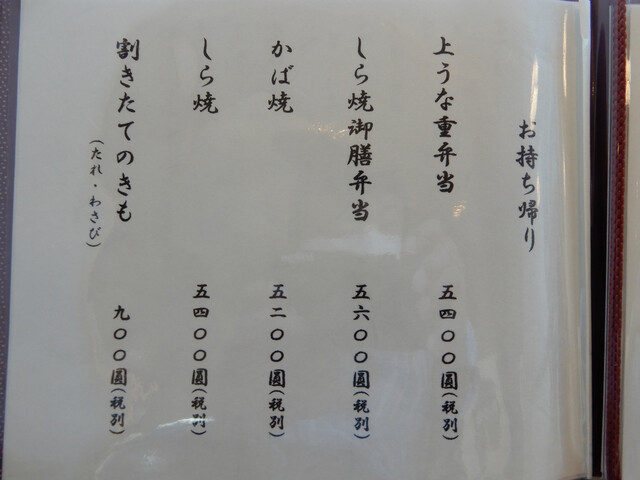 お持ち帰り
上うな重弁当 五四〇〇圓(税別)
しら焼御膳弁当 五六〇〇圓(税別)
かば焼 五二〇〇圓(税別)
しら焼 五四〇〇圓(税別)
割きたてのきも 九〇〇圓(税別)
(たれ・わさび)